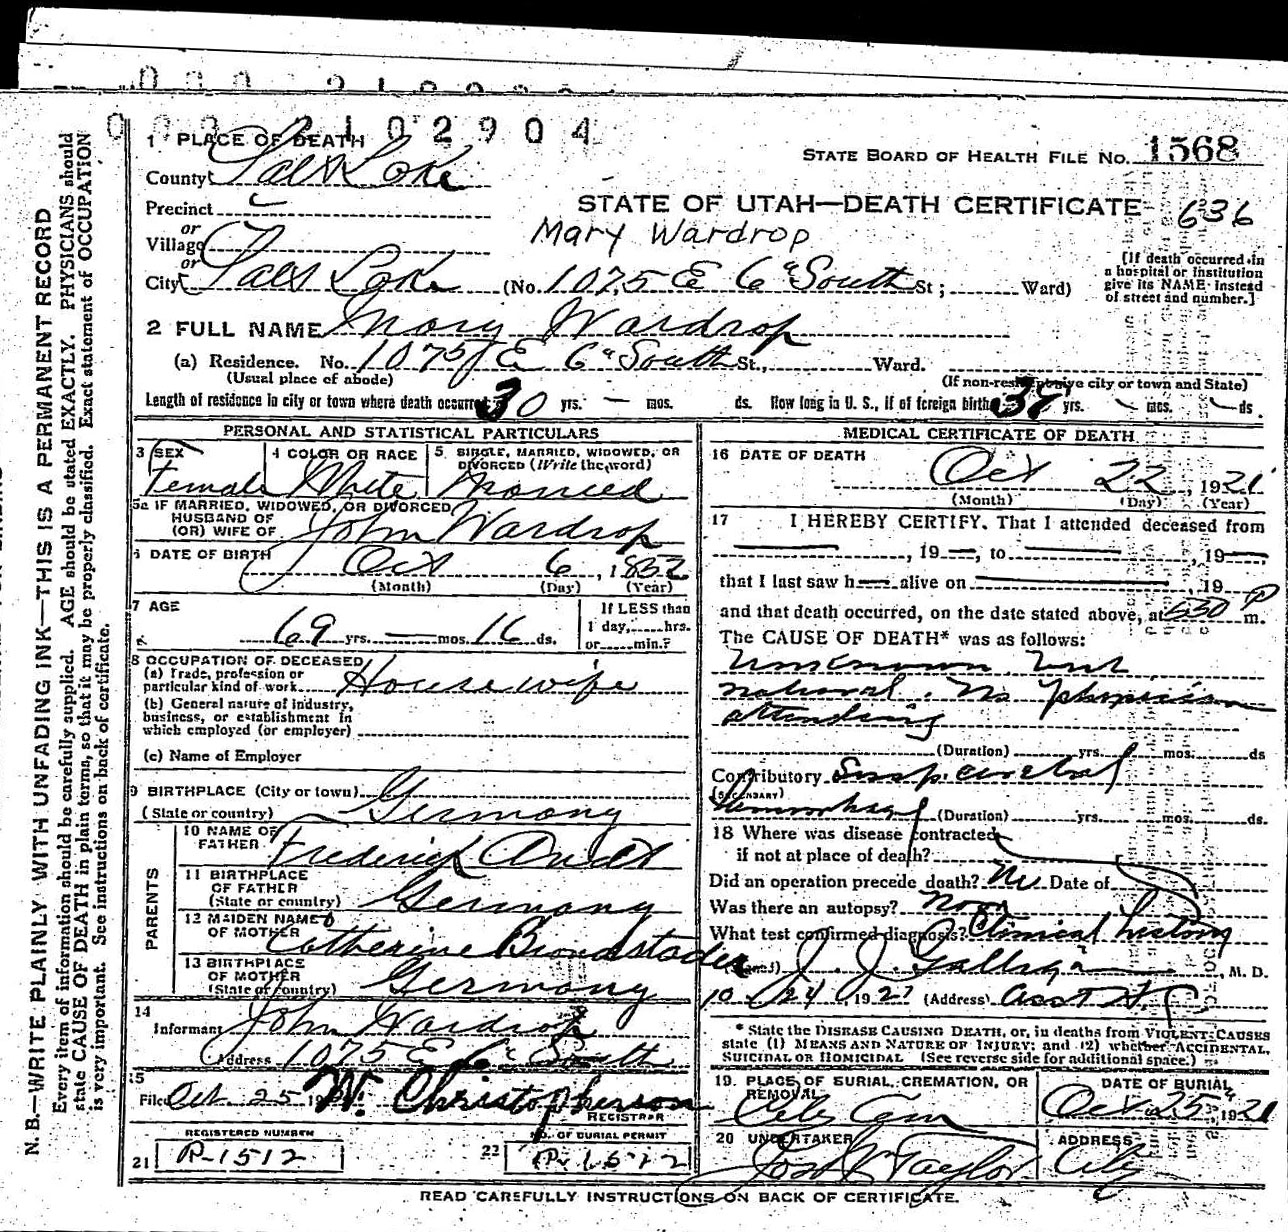 2102904
1 PLACE OF DEATH
STATE BOARD OF HEALTH FILE No. 1568
County Salt Lake
STATE OF UTAH—DEATH CERTIFICATE 636
Precinct
or
Village
Mary Wardrop
or
City Salt Lake (No. 1075 E 6" South St; Ward)
[If death occurred in
a hospital or institution
give its NAME instead
of street and number.]
2 FULL NAME Mary Wardrop
(a) Residence. No. 1075 E 6" South St., Ward.
(Usual place of abode) (If non-resident give city or town and State)
Length of residence in city or town where death occurred 30 yrs. — mos. ds. How long in U. S., if of foreign birth yrs. — mos. — ds.
PERSONAL AND STATISTICAL PARTICULARS
3 SEX Female
4 COLOR OR RACE White
5 SINGLE, MARRIED, WIDOWED, OR
DIVORCED (Write the word) Married
5a IF MARRIED, WIDOWED, OR DIVORCED
HUSBAND OF
(OR) WIFE OF John Wardrop
6 DATE OF BIRTH Oct 6, 1852
(Month) (Day) (Year)
7 AGE
69 yrs. — mos. 16 ds.
If LESS than
1 day, hrs.
or min.?
8 OCCUPATION OF DECEASED
(a) Trade, profession or
particular kind of work Housewife
(b) General nature of industry,
business, or establishment in
which employed (or employer)
(c) Name of Employer
9 BIRTHPLACE (City or town)
(State or country) Germany
PARENTS
10 NAME OF
FATHER Frederick
11 BIRTHPLACE
OF FATHER
(State or country) Germany
12 MAIDEN NAME
OF MOTHER Catherine
13 BIRTHPLACE
OF MOTHER
(State or country) Germany
14
Informant John Wardrop
Address 1075 E 6" South
15
Filed Oct. 25 19 W. Christopherson
REGISTRAR
REGISTERED NUMBER
21 R-1512
NO. OF BURIAL PERMIT
22
MEDICAL CERTIFICATE OF DEATH
16 DATE OF DEATH
Oct 22, 1921
(Month) (Day) (Year)
17 I HEREBY CERTIFY, That I attended deceased from
—, 19—, to —, 19—
that I last saw h— alive on —, 19
and that death occurred, on the date stated above, at 550 P m.
The CAUSE OF DEATH* was as follows:
Unknown but
natural. No physician
attending
(Duration) yrs. mos. ds
Contributory Susp. cerebral
(SECONDARY)
hemorrhage (Duration) yrs. mos. ds.
18 Where was disease contracted
if not at place of death?
Did an operation precede death? No Date of
Was there an autopsy? None
What test confirmed diagnosis? Clinical history
(Signed) J. J. Galligan, M. D.
10-24 1921 (Address) Asst H. C.
* State the DISEASE CAUSING DEATH, or, in deaths from VIOLENT CAUSES
state (1) MEANS AND NATURE OF INJURY; and (2) whether ACCIDENTAL,
SUICIDAL OR HOMICIDAL (See reverse side for additional space.)
19. PLACE OF BURIAL, CREMATION, OR
REMOVAL City Cem
DATE OF BURIAL
Oct 25, 1921
20 UNDERTAKER
Jos Wm Taylor
ADDRESS
City
READ CAREFULLY INSTRUCTIONS ON BACK OF CERTIFICATE.
N. B.—WRITE PLAINLY WITH UNFADING INK—THIS IS A PERMANENT RECORD
Every item of information should be carefully supplied. AGE should be stated EXACTLY. PHYSICIANS should
state CAUSE OF DEATH in plain terms, so that it may be properly classified. Exact statement of OCCUPATION
is very important. See instructions on back of certificate.